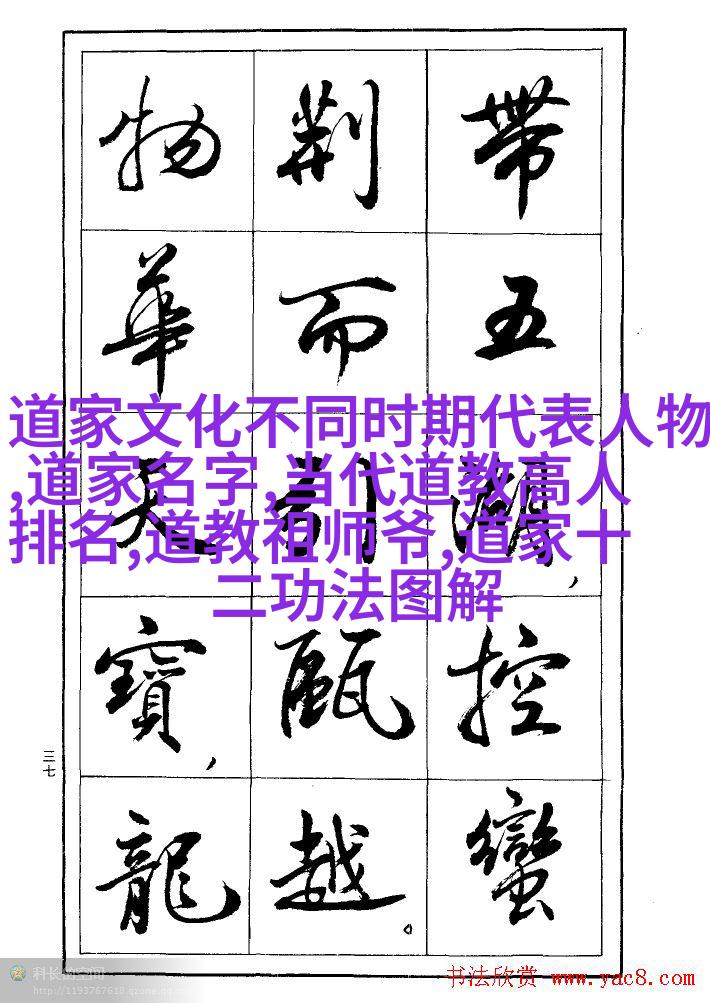 帶五湖，控蠻
荆而引甌越。
物華天寶，龍
道家文化不同时期代表人物
,道家名字,当代道教高人
排名,道教祖师爷,道家十
二功法图解
三七
科长的空间
书法欣赏 www.yac8.com